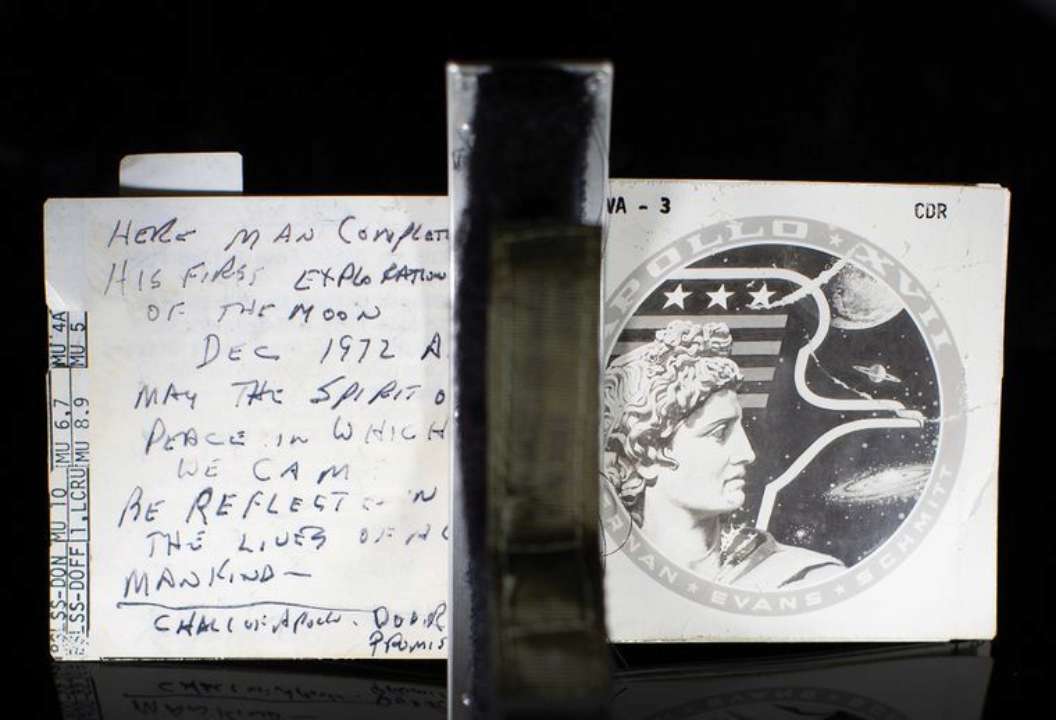 HERE MAN COMPLET
HIS FIRST EXPLORATION
OF THE MOON
DEC 1972 A.
MAY THE SPIRIT O
PEACE IN WHICH
WE CAM
BE REFLECTE IN
THE LIVES OF AL
MANKIND—
MU 4A
MU 5
MU 6.7
MU 8.9
SS-DON MU 10
SS-DOFF 1.LCRU
VA - 3
CDR
APOLLO ★ XVII
RNAN ★ EVANS ★ SCHMITT